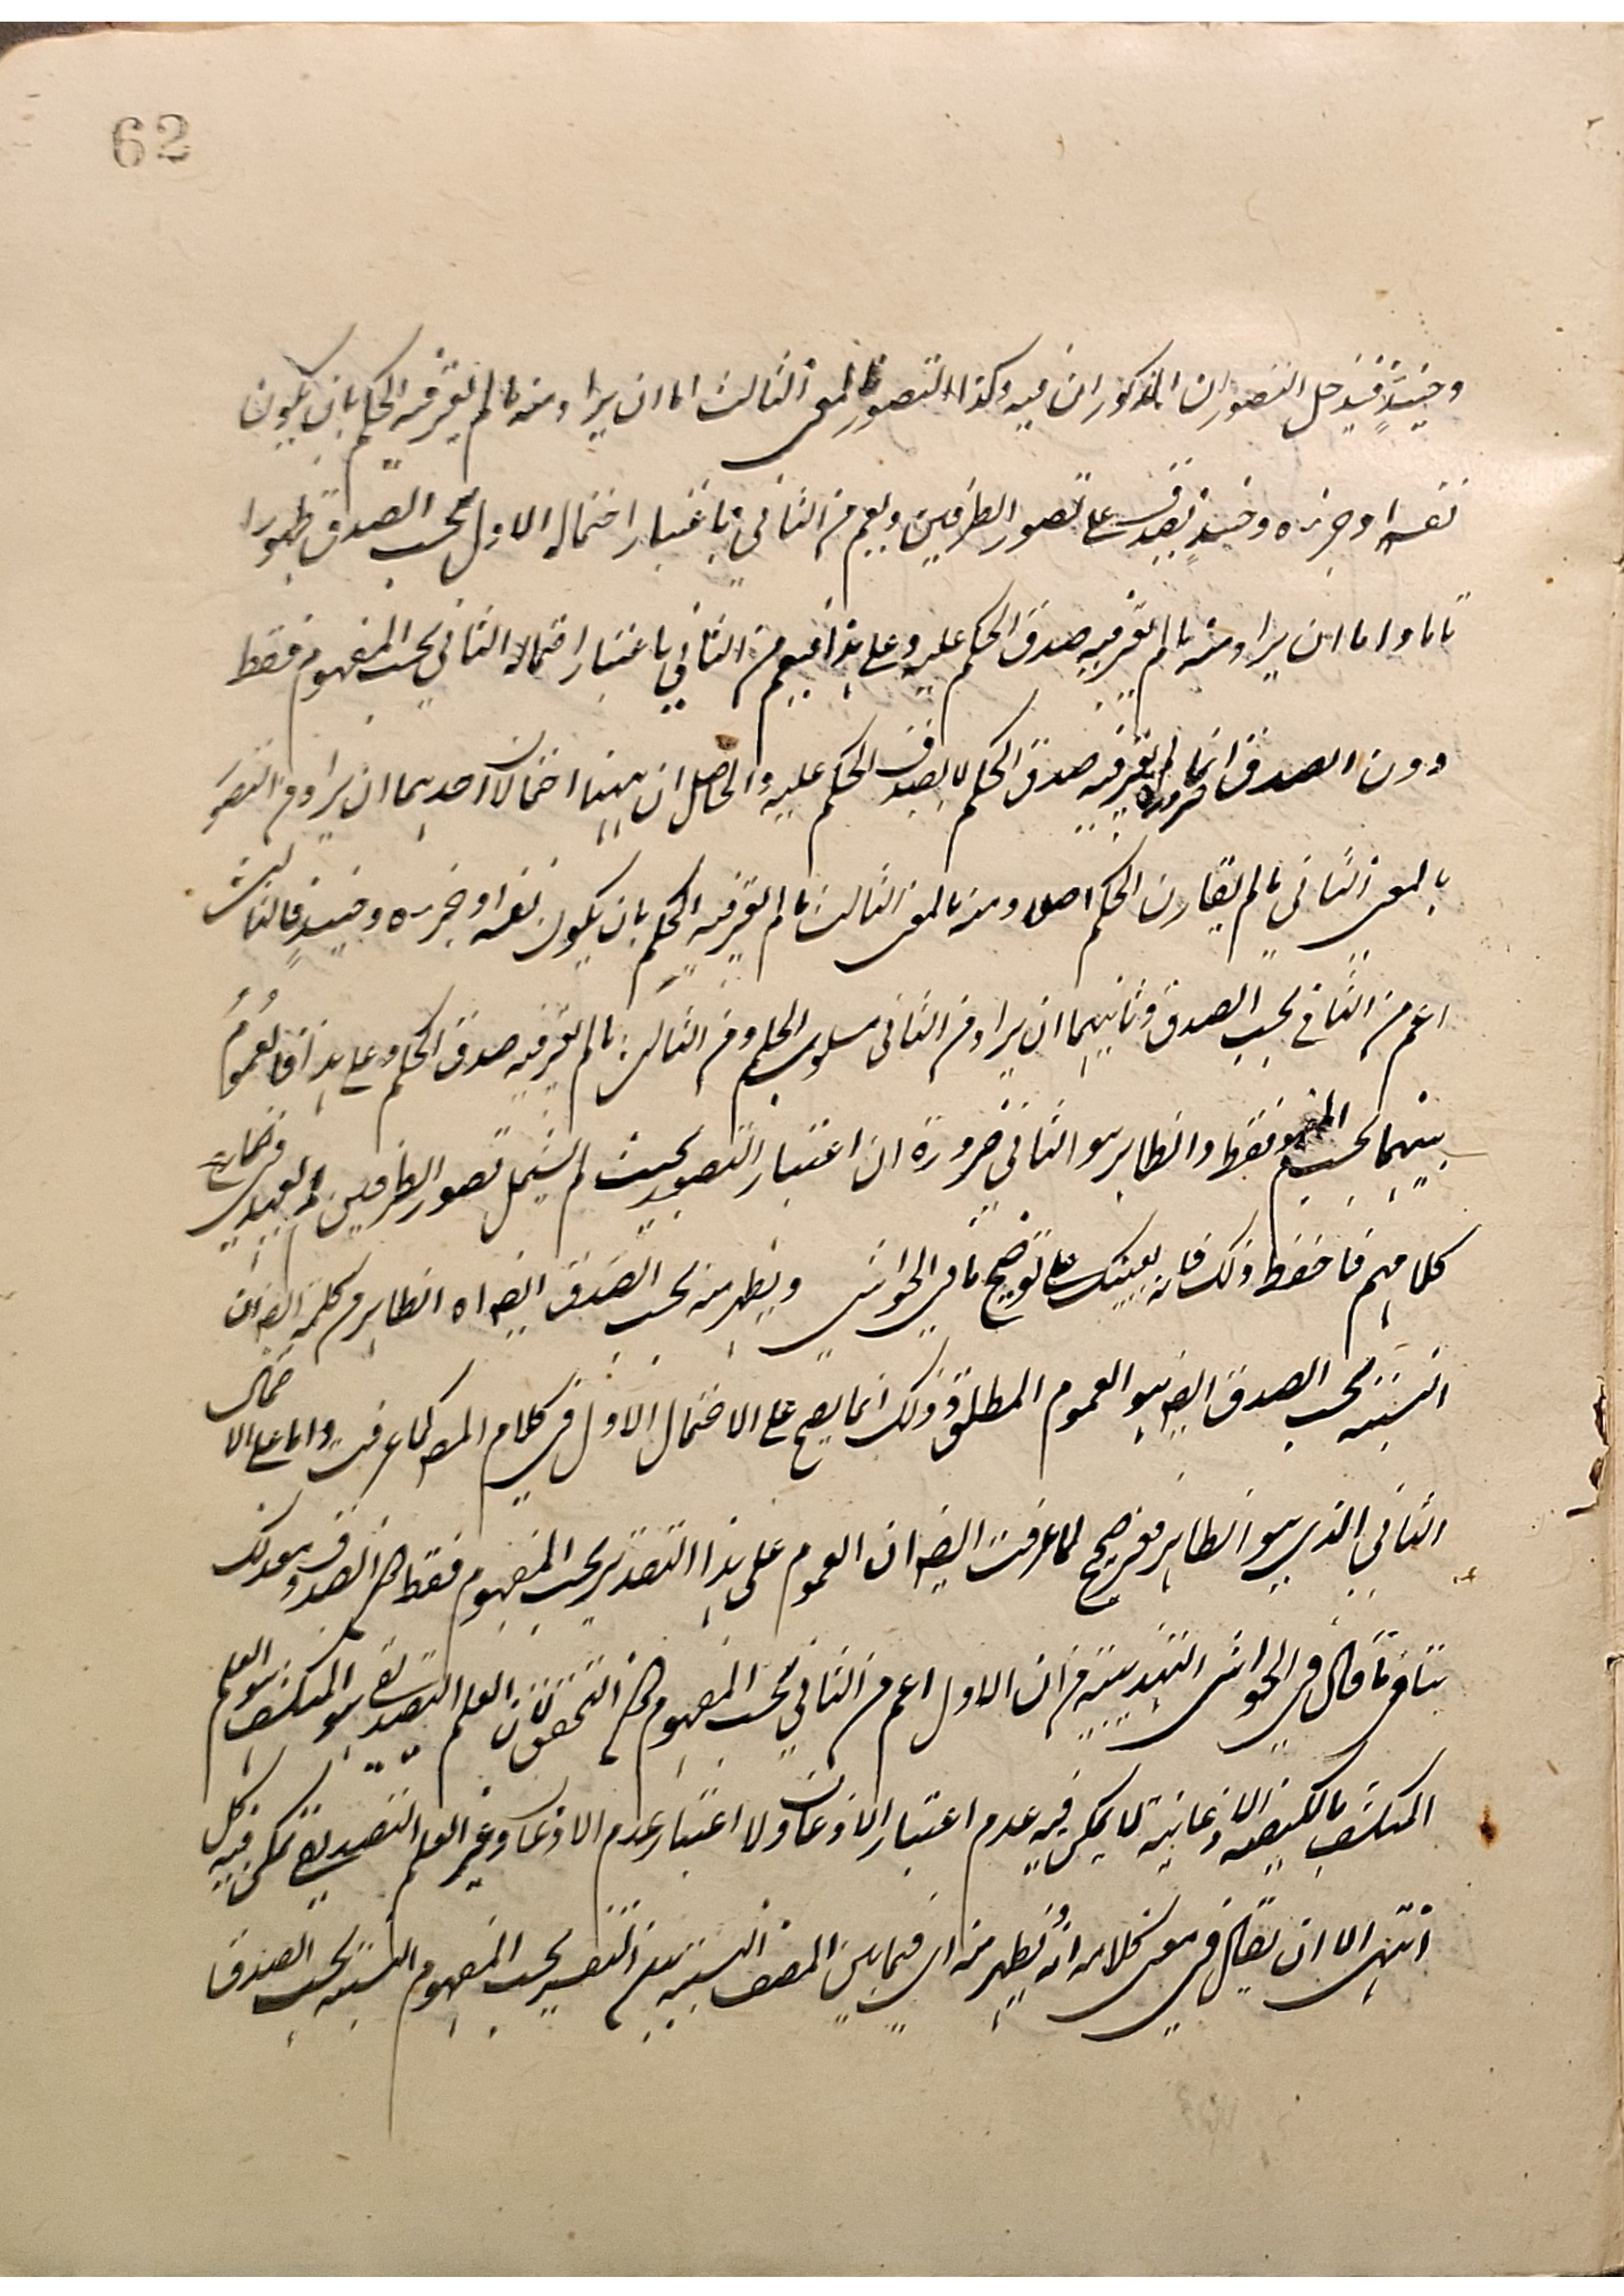 62
وحينئذٍ فيدخل التصوران المذكوران فيه وكذا التصور بالمعنى الثالث اما ان يراد منه ما لم يعتبر فيه الحكم بان يكون
نفسه او جزءه وحينئذٍ يصدق على تصور الطرفين ويعم من الثاني باعتبار احتماله الاول بحسب الصدق ظهورا
تاما واما ان يراد منه ما لم يعتبر فيه صدق الحكم عليه وعلى هذا فيعم من الثاني باعتبار احتماله الثاني بحسب المفهوم فقط
دون الصدق ضرورة ان ما لم يعتبر فيه صدق الحكم لا يصدق الحكم عليه والحاصل ان ههنا احتمالان احدهما ان يراد من التصور
بالمعنى الثاني ما لم يقارن الحكم اصلا ومنه بالمعنى الثالث ما لم يعتبر فيه الحكم بان يكون نفسه او جزءه وحينئذٍ فالثالث
اعم من الثاني بحسب الصدق وثانيهما ان يراد من الثاني مسلوب الحكم ومن الثالث ما لم يعتبر فيه صدق الحكم وعلى هذا فالعموم
بينهما بحسب المفهوم فقط والظاهر هو الثاني ضرورة ان اعتبار التصور بحيث لم يشمل تصور الطرفين لم يعهد في
كلامهم فاحفظ ذلك فانه يعينك على توضيح ما في الحواشي ويظهر منه بحسب الصدق ايضا اه الظاهر من كلمة ايضا ان
النسبة بحسب الصدق ايضا هو العموم المطلق وذلك انما يصح على الاحتمال الاول في كلام المص كما عرفت واما على الاحتمال
الثاني الذي هو الظاهر فغير صحيح لما عرفت ايضا ان العموم على هذا التقدير بحسب المفهوم فقط دون الصدق وبعد ذلك
ينافي ما قال في الحواشي التهذيبية من ان الاول اعم من الثاني بحسب المفهوم دون التحقق لان العلم التصديقي هو المنكشف والعلم
المنكشف بالكيفية الاذعانية لا يمكن فيه عدم اعتبار الاذعان ولا اعتبار عدم الاذعان وغير العلم التصديقي يمكن فيه كل
انتهى الا ان يقال في معنى كلامه انه يظهر منه اي فيما بين المص النسبة بين التفسير بحسب المفهوم النسبة بحسب الصدق